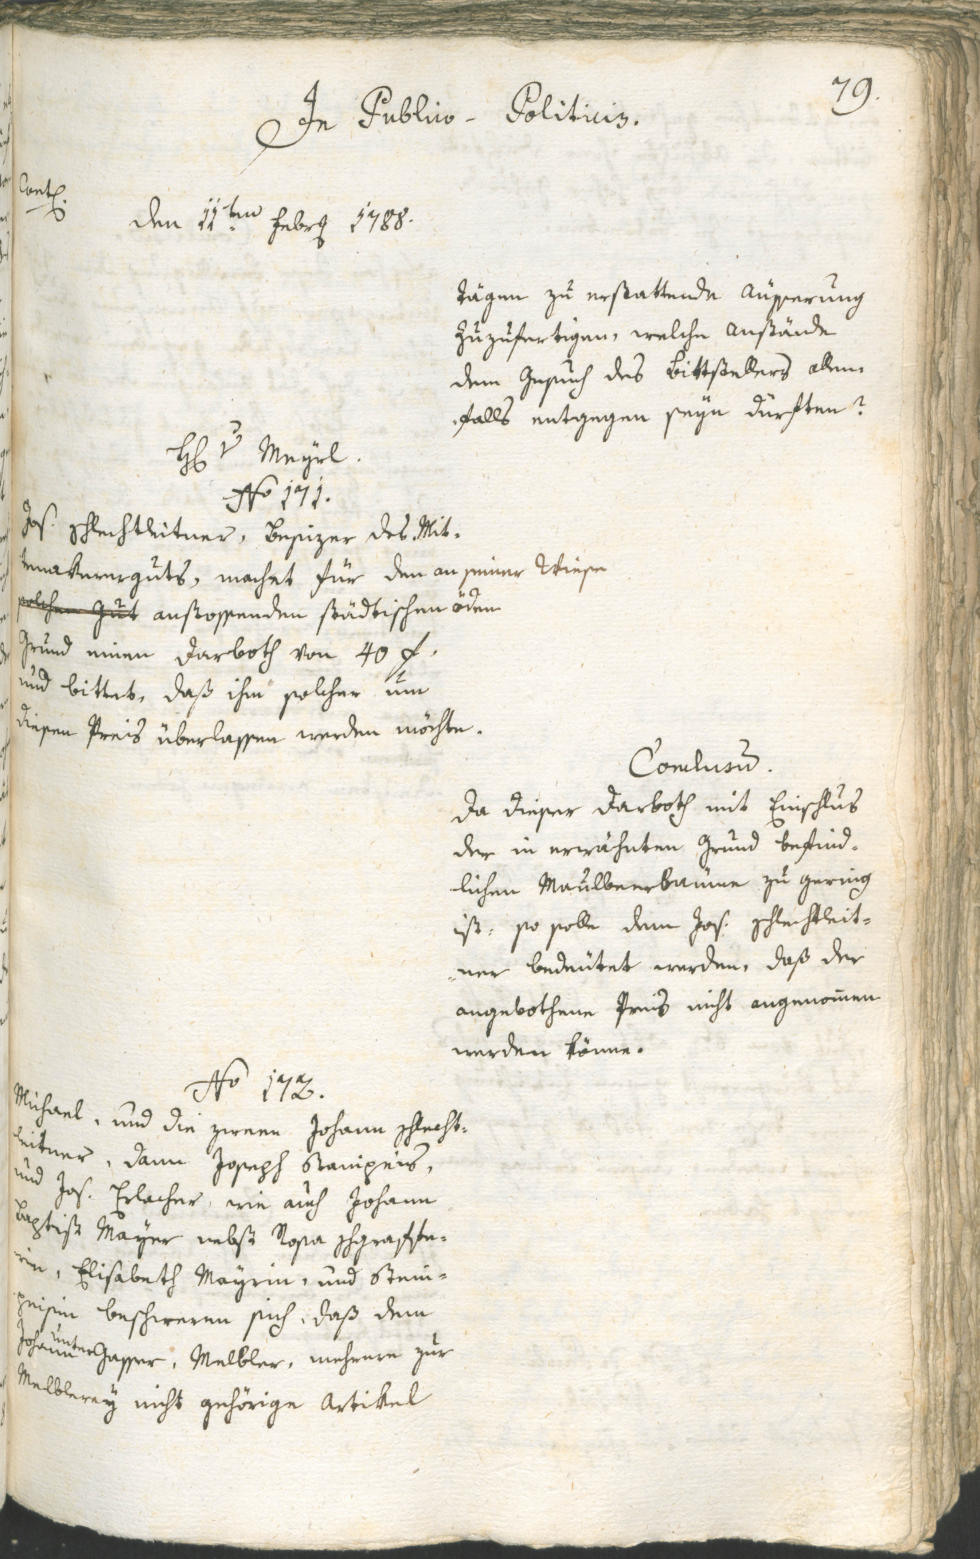 79.
In Publico-Politicis.
Cont.
den 11ten Febr 1788.
tägen zu erstattende Äusserung
zuzufertigen, welche Anstände
dem Gesuch des Bittstellers allen-
falls entgegen seyn dürften?
H v Meyrl.
No 171.
Jos. Schlechtleitner, Besizer des Mit-
terwakererguts, machet für den an seiner Wiese
solchem Gut anstossenden städtischen öden
Grund einen Darboth von 40 f.
und bittet, daß ihm solcher um
diesen Preis überlassen werden möchte.
Conclusu.
Da dieser Darboth mit Einschlus
der in erwähnten Grund befind-
lichen Maulbeerbäume zu gering
ist, so solle dem Jos. Schlechtleit-
ner bedeutet werden, daß der
angebothene Preis nicht angenomen
werden könne.
No 172.
Michael, und die zween Johann Schlecht-
leitner, dann Joseph Stampeis,
und Jos. Erlacher, wie auch Johann
Baptist Mayer nebst Rosa Schgraffe-
rin, Elisabeth Mayrin, und Stein-
peisin beschweren sich, daß dem
Johann Untergasser, Melbler, mehrere zur
Melblerey nicht gehörige Artikel